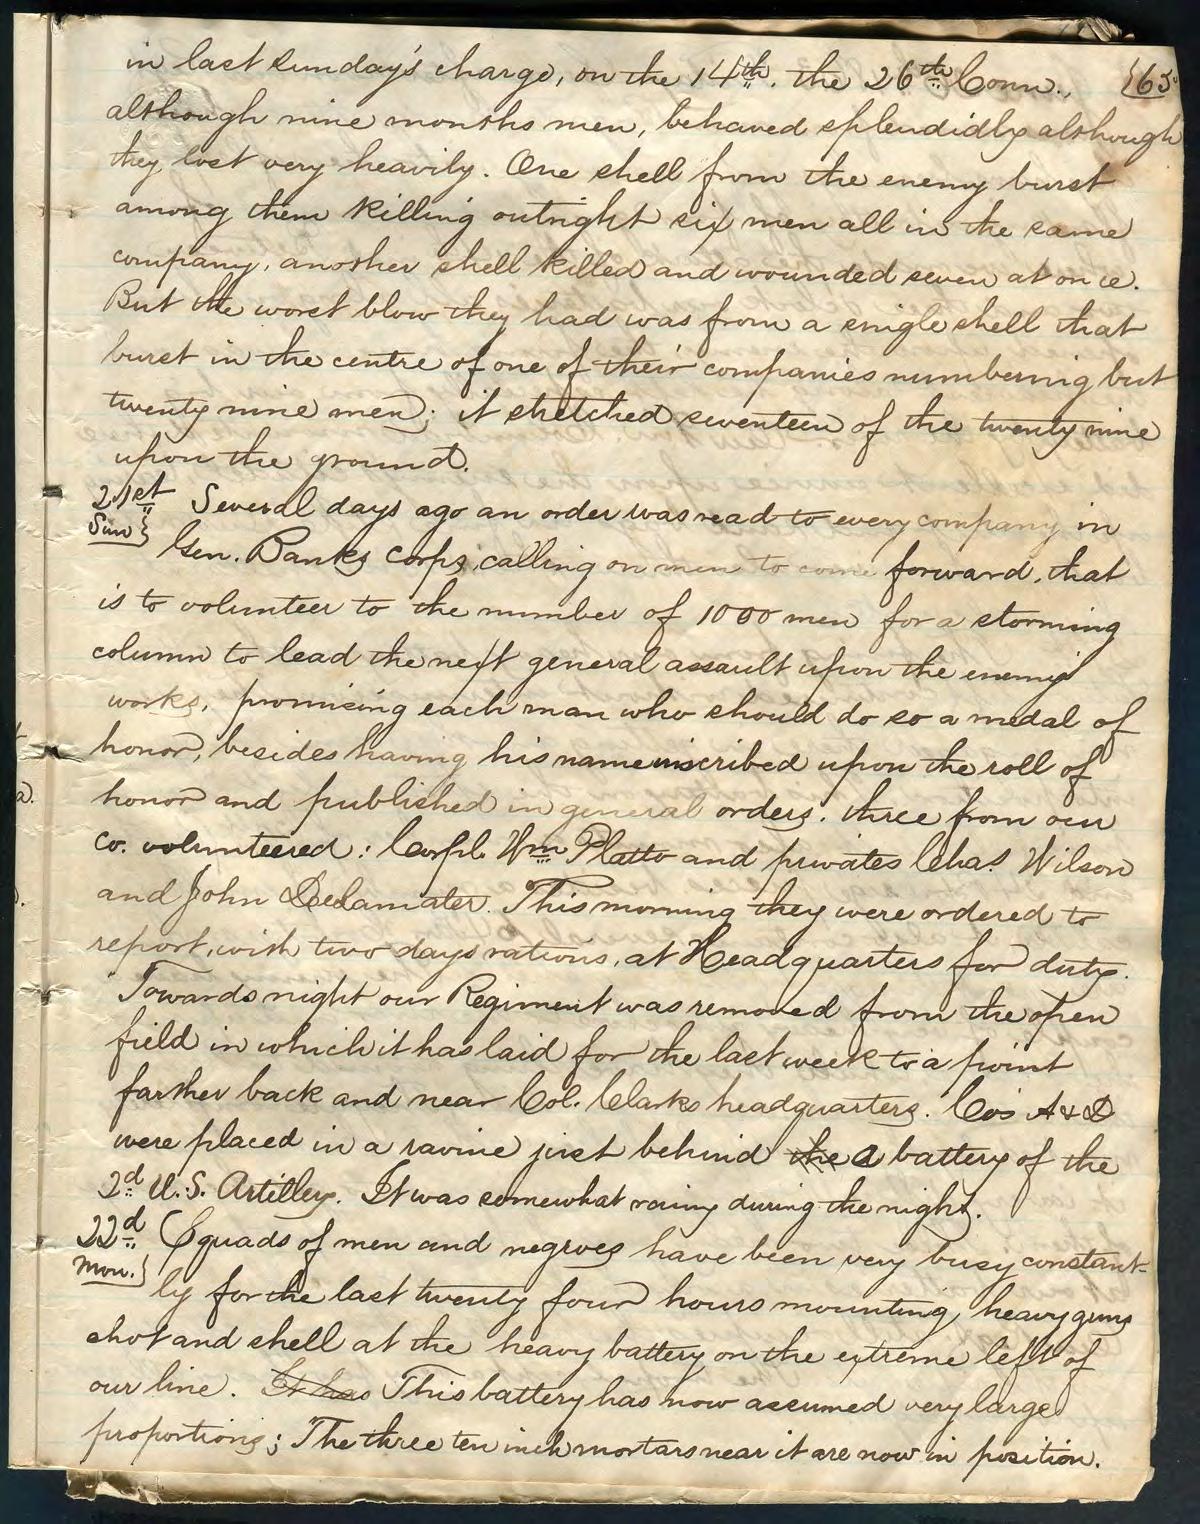 in last Sunday's charge, on the 14th. the 26th Conn., {65
although nine months men, behaved splendidly although
they lost very heavily. One shell from the enemy burst
among them killing outright six men all in the same
company, another shell killed and wounded seven at once.
But the worst blow they had was from a single shell that
burst in the centre of one of their companies numbering but
twenty nine men; it stretched seventeen of the twenty nine
upon the ground.
21st Several days ago an order was read to every company in
Sun} Gen. Banks corps, calling on men to come forward, that
is to volunteer to the number of 1000 men for a storming
column to lead the next general assault upon the enemy's
works, promising each man who should do so a medal of
honor, besides having his name inscribed upon the roll of
honor and published in general orders. three from our
co. volunteered: Corpl. Wm Platto and privates Chas. Wilson
and John Delamater. This morning they were ordered to
report, with two days rations, at Headquarters for duty.
Towards night our Regiment was removed from the open
field in which it has laid for the last week to a point
farther back and near Col. Clarks headquarters. Co's A & D
were placed in a ravine just behind the a battery of the
2d U.S. Artillery. It was somewhat rainy during the night.
22d Squads of men and negroes have been very busy constant-
Mon.} ly for the last twenty four hours mounting heavy guns
shot and shell at the heavy battery on the extreme left of
our line. It has This battery has now assumed very large
proportions; The three ten inch mortars near it are now in position.